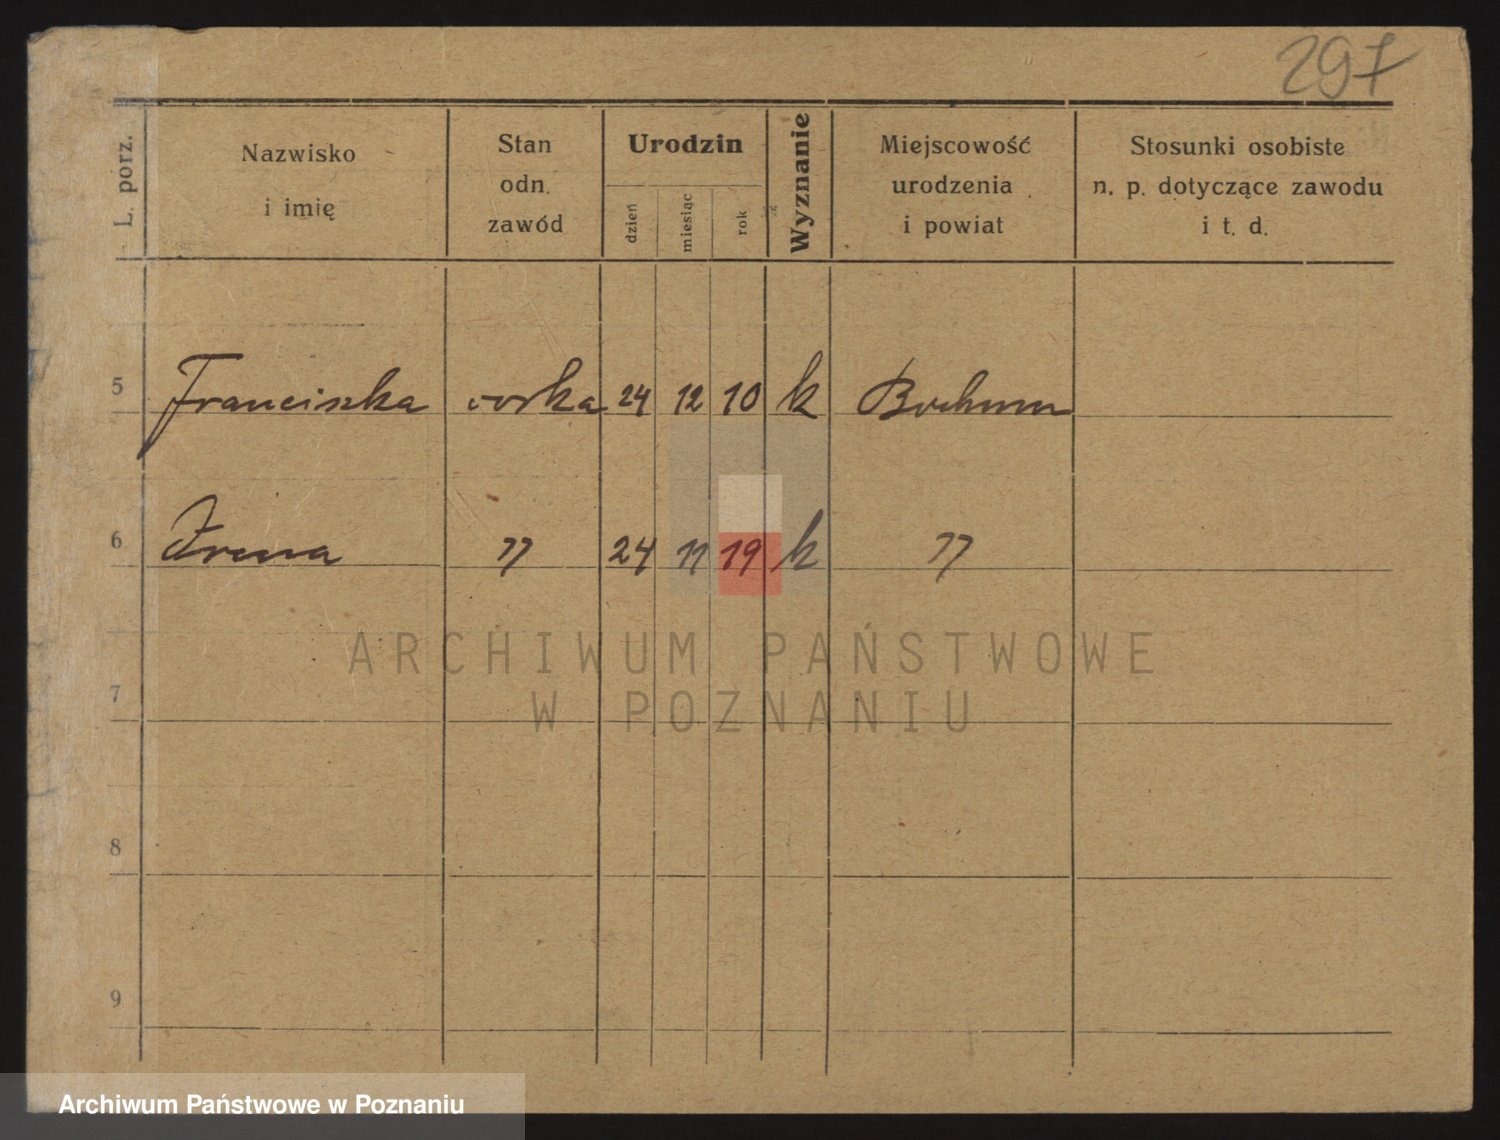 297
L. porz.
Nazwisko
i imię
Stan
odn.
zawód
Urodzin
dzień
miesiąc
rok
Wyznanie
Miejscowość
urodzenia
i powiat
Stosunki osobiste
n. p. dotyczące zawodu
i t. d.
5 Franciszka corka 24 12 10 k Bochum
6 Irena " 24 11 19 k "
7
8
9
ARCHIWUM PAŃSTWOWE
W POZNANIU
Archiwum Państwowe w Poznaniu